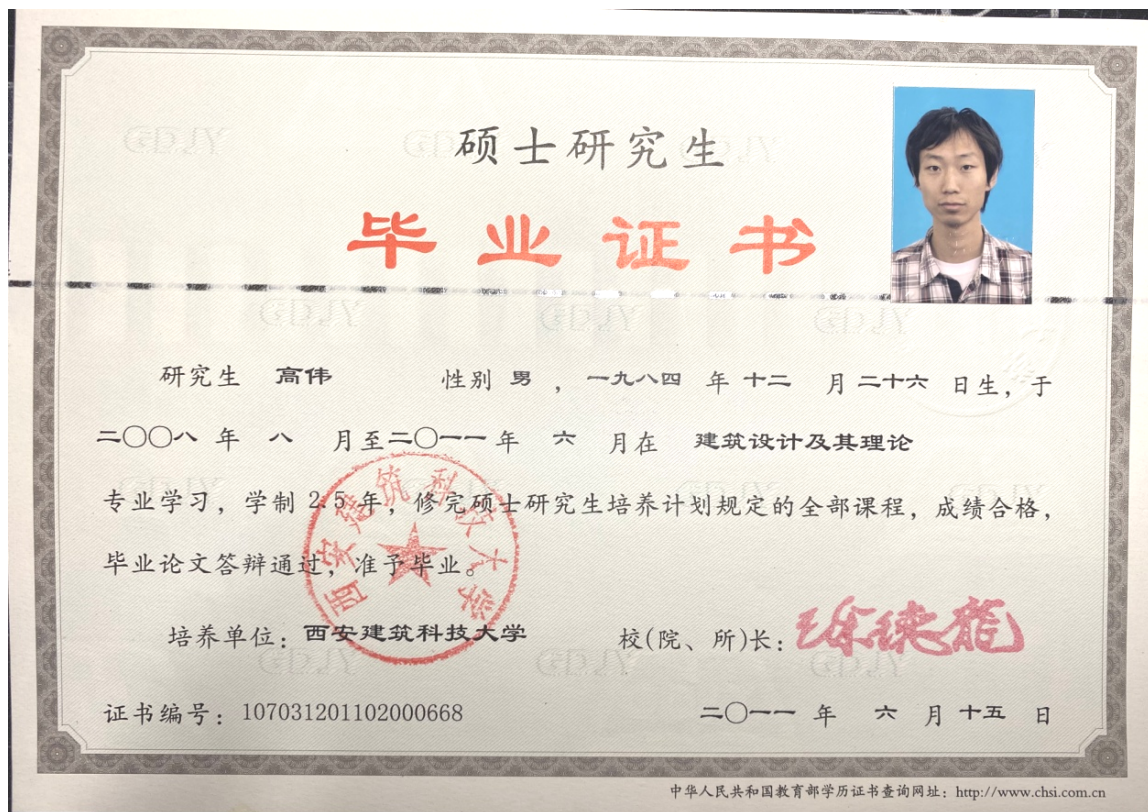 硕士研究生
毕业证书
研究生 高伟 性别 男 , 一九八四 年 十二 月 二十六 日生, 于
二〇〇八 年 八 月至二〇一一年 六 月在 建筑设计及其理论
专业学习, 学制 2.5 年, 修完硕士研究生培养计划规定的全部课程, 成绩合格,
毕业论文答辩通过, 准予毕业。
西安建筑科技大学
培养单位: 西安建筑科技大学 校(院、所)长:
证书编号: 107031201102000668 二〇一一 年 六 月 十五 日
中华人民共和国教育部学历证书查询网址: http://www.chsi.com.cn